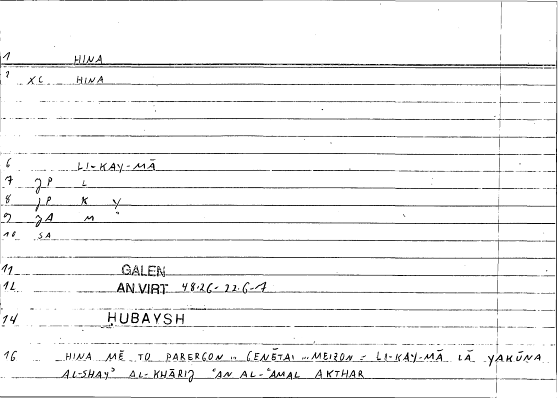 1 HINA
2 XC HINA
6 LI-KAY-MĀ
7 JP L
8 JP K Y
9 JA M
10 SA
11 GALEN
12 AN.VIRT 48.26-22.6-7
14 HUBAYSH
16 HINA MĒ TO PARERGON .. GENĒTAI .. MEIZON = LI-KAY-MĀ LĀ YAKŪNA
AL-SHAYʾ AL-KHĀRIJ ʿAN AL-ʿAMAL AKTHAR